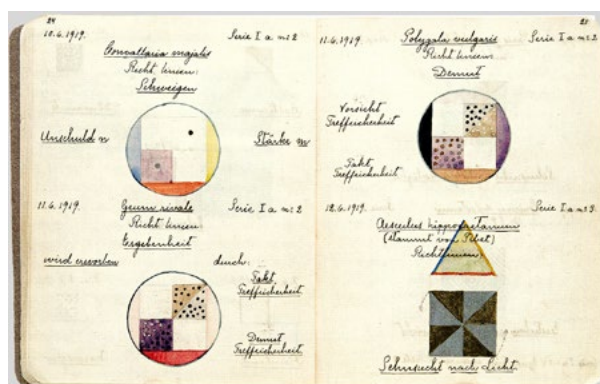 24
10.6.1919.
Serie I a nr: 2
Convallaria majalis
Richtlinien:
Schweigen
Unschuld
Stärke
11.6.1919.
Geum rivale
Serie I a nr: 2
Richtlinien:
Ergebenheit
wird erworben
durch:
Takt
Treffsicherheit
Demut
Treffsicherheit
25
11.6.1919.
Polygala vulgaris
Serie I a nr: 2
Richtlinien:
Demut
Vorsicht
Treffsicherheit
Takt
Treffsicherheit
12.6.1919.
Serie I a nr: 3.
Aesculus hippocastanum
(stammt von Tibet)
Richtlinien
Sehnsucht nach Licht